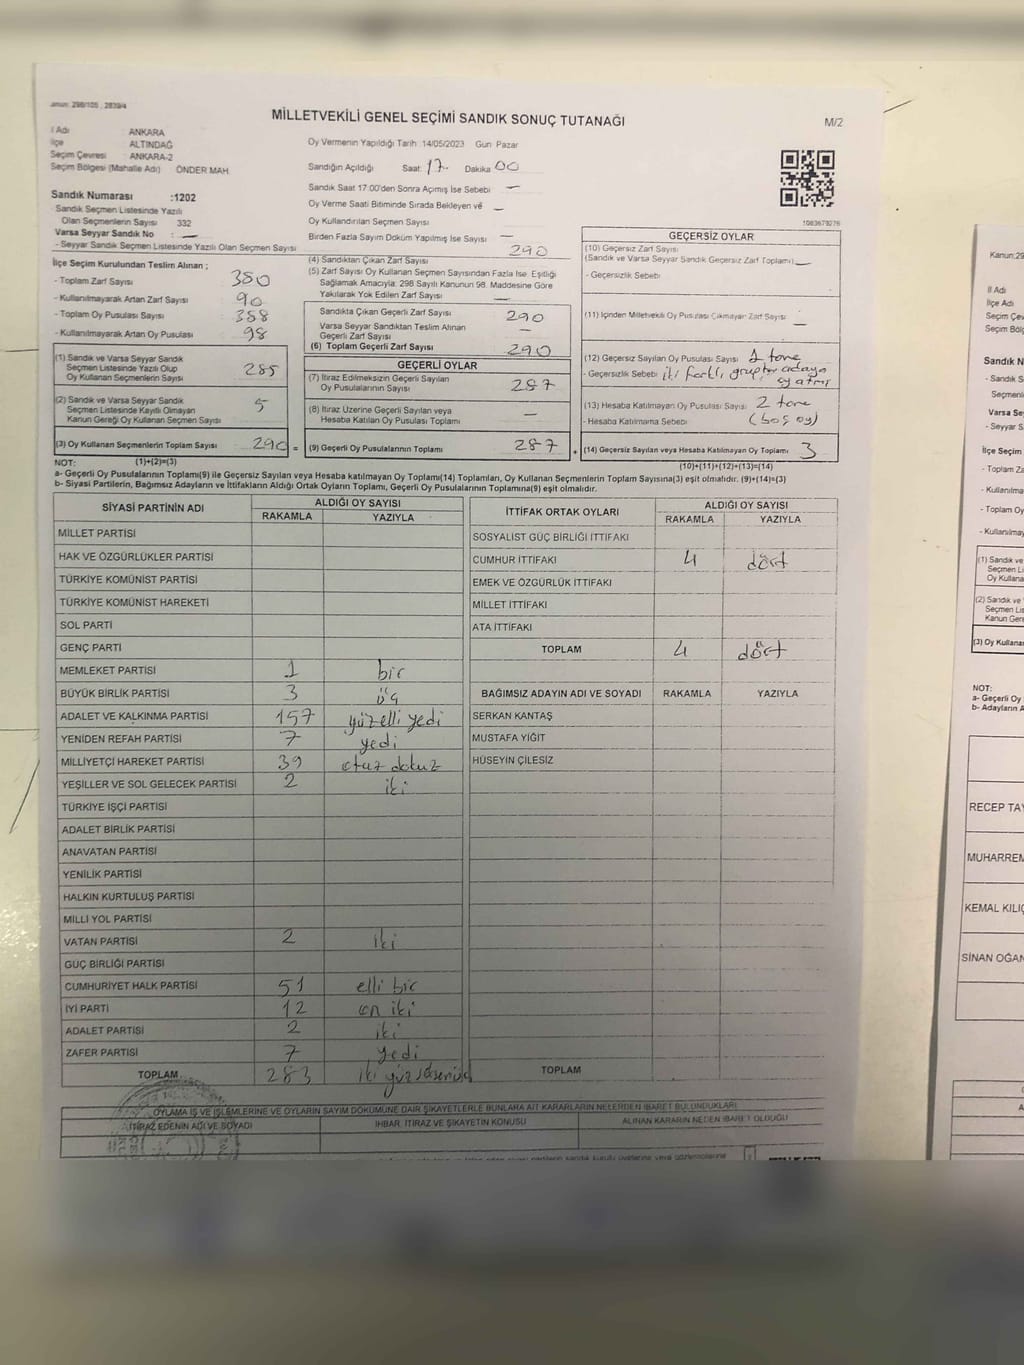 Kanun: 298/105 , 2839/4
MİLLETVEKİLİ GENEL SEÇİMİ SANDIK SONUÇ TUTANAĞI
M/2
İl Adı ANKARA
İlçe ALTINDAĞ
Seçim Çevresi ANKARA-2
Seçim Bölgesi (Mahalle Adı) ÖNDER MAH.
Sandık Numarası :1202
Sandık Seçmen Listesinde Yazılı
Olan Seçmenlerin Sayısı 332
Varsa Seyyar Sandık No : —
- Seyyar Sandık Seçmen Listesinde Yazılı Olan Seçmen Sayısı
Oy Vermenin Yapıldığı Tarih: 14/05/2023 Gün Pazar
Sandığın Açıldığı Saat: 17 Dakika 00
Sandık Saat 17:00'den Sonra Açımış İse Sebebi —
Oy Verme Saati Bitiminde Sırada Bekleyen ve —
Oy Kullandırılan Seçmen Sayısı
Birden Fazla Sayım Döküm Yapılmış İse Sayısı —
1083679276
İlçe Seçim Kurulundan Teslim Alınan ;
- Toplam Zarf Sayısı 380
- Kullanılmayarak Artan Zarf Sayısı 90
- Toplam Oy Pusulası Sayısı 388
- Kullanılmayarak Artan Oy Pusulası 98
(1) Sandık ve Varsa Seyyar Sandık
Seçmen Listesinde Yazılı Olup
Oy Kullanan Seçmenlerin Sayısı 285
(2) Sandık ve Varsa Seyyar Sandık
Seçmen Listesinde Kayıtlı Olmayan
Kanun Gereği Oy Kullanan Seçmen Sayısı 5
(3) Oy Kullanan Seçmenlerin Toplam Sayısı 290 =
(4) Sandıktan Çıkan Zarf Sayısı 290
(5) Zarf Sayısı Oy Kullanan Seçmen Sayısından Fazla İse, Eşitliği
Sağlamak Amacıyla; 298 Sayılı Kanunun 98. Maddesine Göre
Yakılarak Yok Edilen Zarf Sayısı —
Sandıkta Çıkan Geçerli Zarf Sayısı 290
Varsa Seyyar Sandıktan Teslim Alınan
Geçerli Zarf Sayısı —
(6) Toplam Geçerli Zarf Sayısı 290
GEÇERLİ OYLAR
(7) İtiraz Edilmeksizin Geçerli Sayılan
Oy Pusulalarının Sayısı 287
(8) İtiraz Üzerine Geçerli Sayılan veya
Hesaba Katılan Oy Pusulası Toplamı —
(9) Geçerli Oy Pusulalarının Toplamı 287 +
GEÇERSİZ OYLAR
(10) Geçersiz Zarf Sayısı
(Sandık ve Varsa Seyyar Sandık Geçersiz Zarf Toplamı) —
- Geçersizlik Sebebi
(11) İçinden Milletvekili Oy Pusulası Çıkmayan Zarf Sayısı —
(12) Geçersiz Sayılan Oy Pusulası Sayısı 1 tane
- Geçersizlik Sebebi iki farklı
(13) Hesaba Katılmayan Oy Pusulası Sayısı 2 tane
- Hesaba Katılmama Sebebi (boş oy)
(14) Geçersiz Sayılan veya Hesaba Katılmayan Oy Toplamı 3
NOT: (1)+(2)=(3)
(10)+(11)+(12)+(13)=(14)
a- Geçerli Oy Pusulalarının Toplamı(9) ile Geçersiz Sayılan veya Hesaba katılmayan Oy Toplamı(14) Toplamları, Oy Kullanan Seçmenlerin Toplam Sayısına(3) eşit olmalıdır. (9)+(14)=(3)
b- Siyasi Partilerin, Bağımsız Adayların ve İttifakların Aldığı Ortak Oyların Toplamı, Geçerli Oy Pusulalarının Toplamına(9) eşit olmalıdır.
SİYASİ PARTİNİN ADI ALDIĞI OY SAYISI
RAKAMLA YAZIYLA
MİLLET PARTİSİ
HAK VE ÖZGÜRLÜKLER PARTİSİ
TÜRKİYE KOMÜNİST PARTİSİ
TÜRKİYE KOMÜNİST HAREKETİ
SOL PARTİ
GENÇ PARTİ
MEMLEKET PARTİSİ 1 bir
BÜYÜK BİRLİK PARTİSİ 3 üç
ADALET VE KALKINMA PARTİSİ 157 yüzelli yedi
YENİDEN REFAH PARTİSİ 7 yedi
MİLLİYETÇİ HAREKET PARTİSİ 39 otuz dokuz
YEŞİLLER VE SOL GELECEK PARTİSİ 2 iki
TÜRKİYE İŞÇİ PARTİSİ
ADALET BİRLİK PARTİSİ
ANAVATAN PARTİSİ
YENİLİK PARTİSİ
HALKIN KURTULUŞ PARTİSİ
MİLLİ YOL PARTİSİ
VATAN PARTİSİ 2 iki
GÜÇ BİRLİĞİ PARTİSİ
CUMHURİYET HALK PARTİSİ 51 elli bir
İYİ PARTİ 12 on iki
ADALET PARTİSİ 2 iki
ZAFER PARTİSİ 7 yedi
TOPLAM 283 iki yüz
İTTİFAK ORTAK OYLARI ALDIĞI OY SAYISI
RAKAMLA YAZIYLA
SOSYALİST GÜÇ BİRLİĞİ İTTİFAKI
CUMHUR İTTİFAKI 4 dört
EMEK VE ÖZGÜRLÜK İTTİFAKI
MİLLET İTTİFAKI
ATA İTTİFAKI
TOPLAM 4 dört
BAĞIMSIZ ADAYIN ADI VE SOYADI RAKAMLA YAZIYLA
SERKAN KANTAŞ
MUSTAFA YİĞİT
HÜSEYİN ÇİLESİZ
TOPLAM
OYLAMA İŞ VE İŞLEMLERİNE VE OYLARIN SAYIM DÖKÜMÜNE DAİR ŞİKAYETLERLE BUNLARA AİT KARARLARIN NELERDEN İBARET BULUNDUKLARI
İTİRAZ EDENİN ADI VE SOYADI İHBAR, İTİRAZ VE ŞİKAYETİN KONUSU ALINAN KARARIN NEDEN İBARET OLDUĞU
Kanun:29
İl Adı
İlçe Adı
Seçim Çev
Seçim Böl
Sandık N
- Sandık S
Seçmenl
Varsa Se
- Seyyar S
İlçe Seçim
- Toplam Za
- Kullanılma
- Toplam Oy
- Kullanılmay
(1) Sandık ve
Seçmen Li
Oy Kullana
(2) Sandık ve
Seçmen Lis
Kanun Gere
(3) Oy Kullana
NOT:
a- Geçerli Oy
b- Adayların A
RECEP TAY
MUHARREM
KEMAL KILIÇ
SİNAN OĞAN